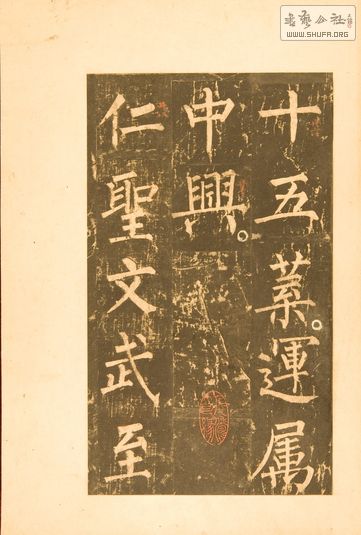 十五葉運属
中興
仁聖文武至
書藝公社
WWW.SHUFA.ORG